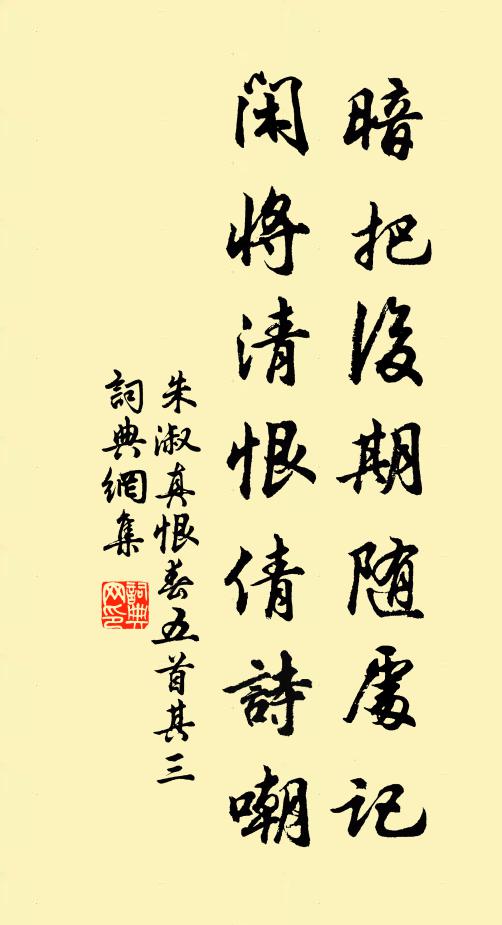 暗把後期隨處記
閑將清恨倩詩嘲
朱淑真恨春五首其三
詞典網集
詞典网印